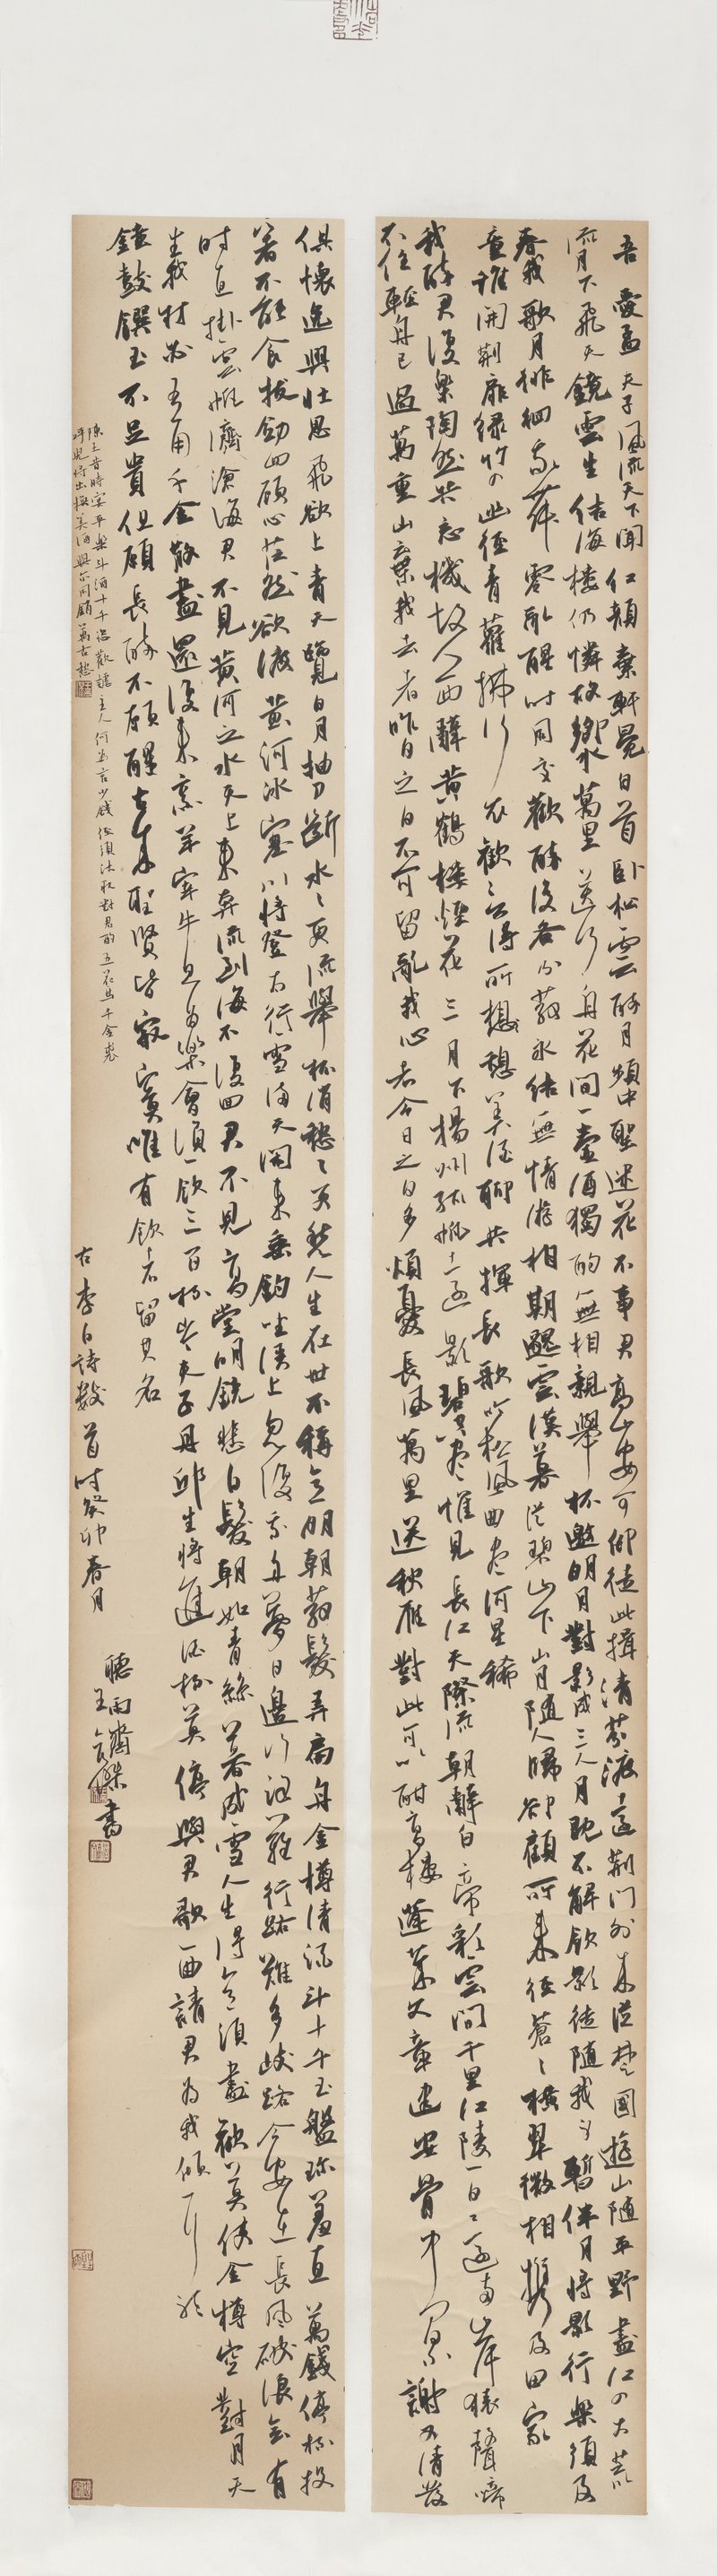 吾愛孟夫子風流天下聞紅顏棄軒冕白首臥松雲醉月頻中聖迷花不事君高山安可仰徒此揖清芬渡遠荊門外來從楚國遊山隨平野盡江入大荒
流月下飛天鏡雲生結海樓仍憐故鄉水萬里送行舟花間一壺酒獨酌無相親舉杯邀明月對影成三人月既不解飲影徒隨我身暫伴月將影行樂須及
春我歌月徘徊我舞零亂醒時同交歡醉後各分散永結無情遊相期邈雲漢暮從碧山下山月隨人歸卻顧所來徑蒼々橫翠微相攜及田家
童稚開荊扉綠竹入幽徑青蘿拂行衣歡言得所憩美酒聊共揮長歌吟松風曲盡河星稀
我醉君復樂陶然共忘機故人西辭黃鶴樓煙花三月下揚州孤帆遠影碧空盡惟見長江天際流朝辭白帝彩雲間千里江陵一日還兩岸猿聲啼
不住輕舟已過萬重山棄我去者昨日之日不可留亂我心者今日之日多煩憂長風萬里送秋雁對此可以酣高樓蓬萊文章建安骨中間小謝又清發
俱懷逸興壯思飛欲上青天覽日月抽刀斷水々更流舉杯消愁々更愁人生在世不稱意明朝散髮弄扁舟金樽清酒斗十千玉盤珍羞直萬錢停杯投
箸不能食拔劍四顧心茫然欲渡黃河冰塞川將登太行雪滿天閒來垂釣坐溪上忽復乘舟夢日邊行路難行路難多歧路今安在長風破浪會有
時直掛雲帆濟滄海君不見黃河之水天上來奔流到海不復回君不見高堂明鏡悲白髮朝如青絲暮成雪人生得意須盡歡莫使金樽空對月天
生我材必有用千金散盡還復來烹羊宰牛且為樂會須一飲三百杯岑夫子丹邱生將進酒杯莫停與君歌一曲請君為我傾耳聽
鐘鼓饌玉不足貴但願長醉不願醒古來聖賢皆寂寞唯有飲者留其名
陳王昔時宴平樂斗酒十千恣歡謔主人何為言少錢徑須沽取對君酌五花馬千金裘
呼兒將出換美酒與爾同銷萬古愁
右李白詩數首時癸卯春月
聽雨齋
王傑書